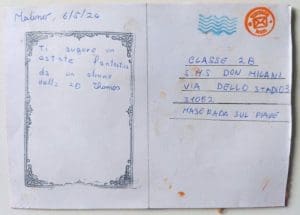 6/5/24
Ti auguro un
estate fantastica
da un alunno
della 2D
CLASSE 2B
S.M.S DON MILANI
VIA DELLO STADIO 3
31052
MASERADA SUL PIAVE